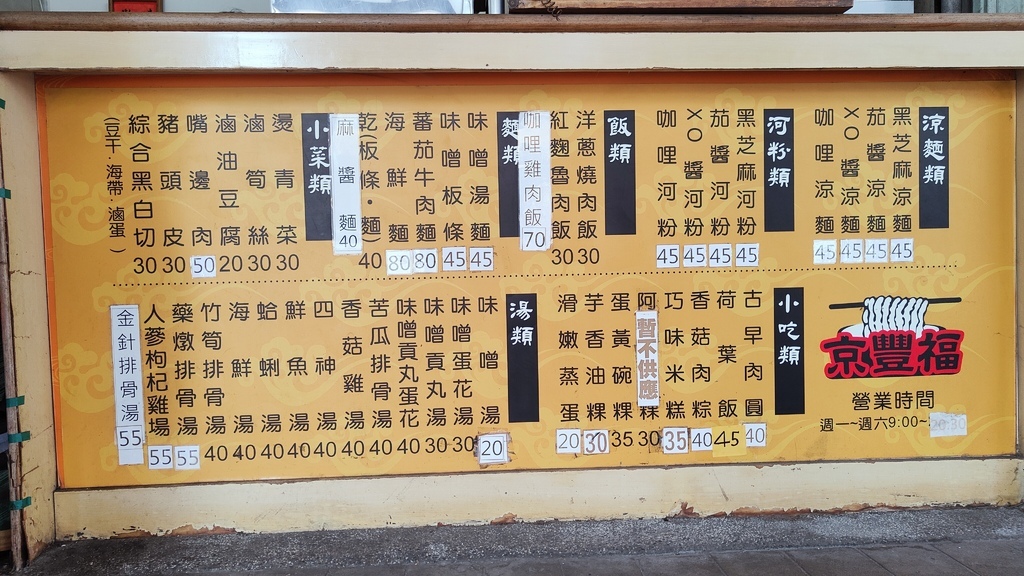 涼麵類
黑芝麻涼麵 45
茄醬涼麵 45
XO醬涼麵 45
咖哩涼麵 45
河粉類
黑芝麻河粉 45
茄醬河粉 45
XO醬河粉 45
咖哩河粉 45
飯類
洋蔥燒肉飯 30
紅麴魯肉飯 30
咖哩雞肉飯 70
麵類
味噌湯麵 45
味噌板條 45
蕃茄牛肉麵 80
海鮮麵 80
乾(板條·麵) 40
麻醬麵 40
小菜類
燙青菜 30
滷筍絲 30
滷油豆腐 20
嘴邊肉 50
豬頭皮 30
綜合黑白切 30
(豆干·海帶·滷蛋)
京豐福
營業時間
週一~週六9:00~20:30
小吃類
古早肉圓 40
荷葉飯 45
香菇肉粽 40
巧味米糕 35
阿 暫不供應 30
蛋黃碗粿 35
芋香油粿 30
滑嫩蒸蛋 20
湯類
味噌湯 20
味噌蛋花湯 30
味噌貢丸湯 30
味噌貢丸蛋花 40
苦瓜排骨湯 40
香菇雞湯 40
四神湯 40
鮮魚湯 40
蛤蜊湯 40
海鮮湯 40
竹筍排骨湯 40
藥燉排骨湯 55
人蔘枸杞雞場 55
金針排骨湯 55